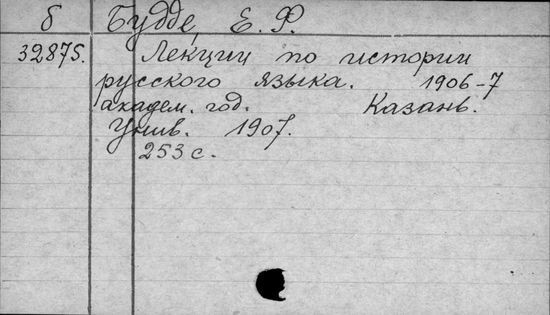 б Будде, Е. Ф.
32875. Лекции по истории
русского языка. 1906-7
академ. год. Казань.
Унив. 1907.
253 с.